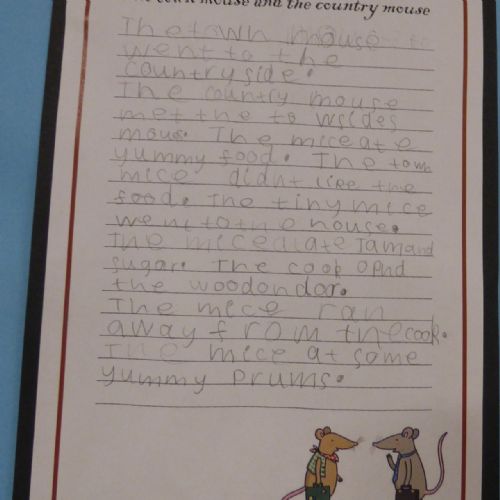 town mouse and the country mouse
The town mouse to
went to the
countryside.
The country mouse
met the to wsides
mous. The mice ate
yummy food. The town
mice didnt liee the
food. The tiny mice
went to the house.
The mice ate Jam and
sugar. The cook opnd
the woodondor.
The mice ran
away from the cook.
The mice at some
yummy prums.